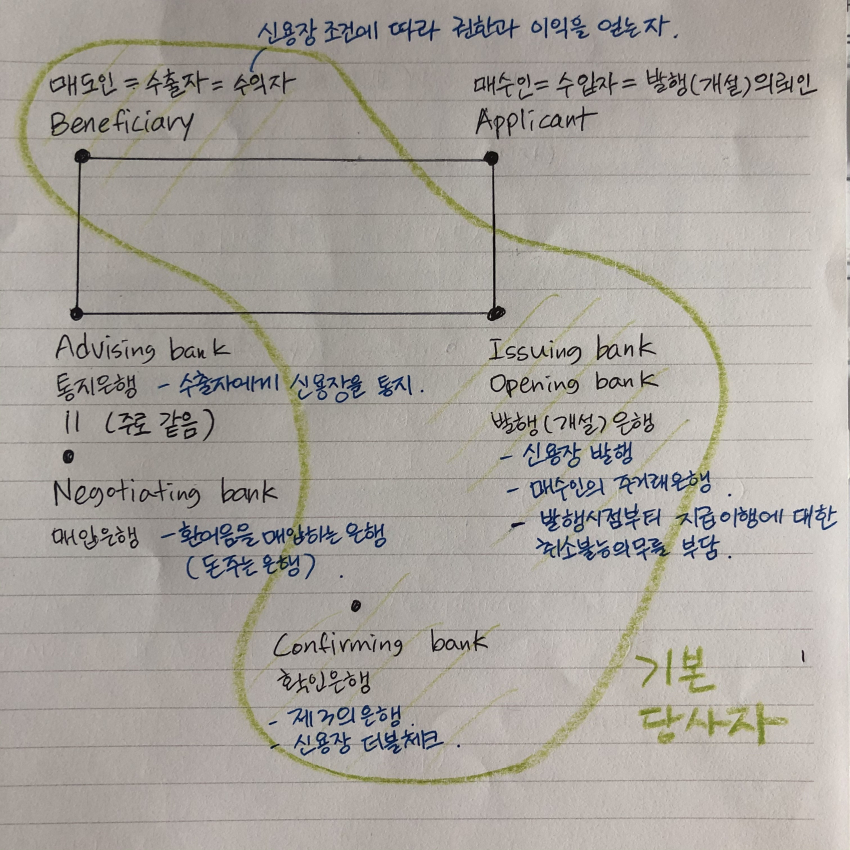 신용장 조건에 따라 권한과 이익을 얻는자.
매도인 = 수출자 = 수익자
Beneficiary
매수인 = 수입자 = 발행(개설)의뢰인
Applicant
Advising bank
통지은행 - 수출자에게 신용장을 통지.
|| (주로 같음)
Negotiating bank
매입은행 - 환어음을 매입하는 은행
(돈주는 은행).
Issuing bank
Opening bank
발행(개설)은행
- 신용장 발행
- 매수인의 주거래은행.
- 발행시점부터 지급이행에 대한
취소불능의무를 부담.
Confirming bank
확인은행
- 제3의은행.
- 신용장 더블체크.
기본
당사자